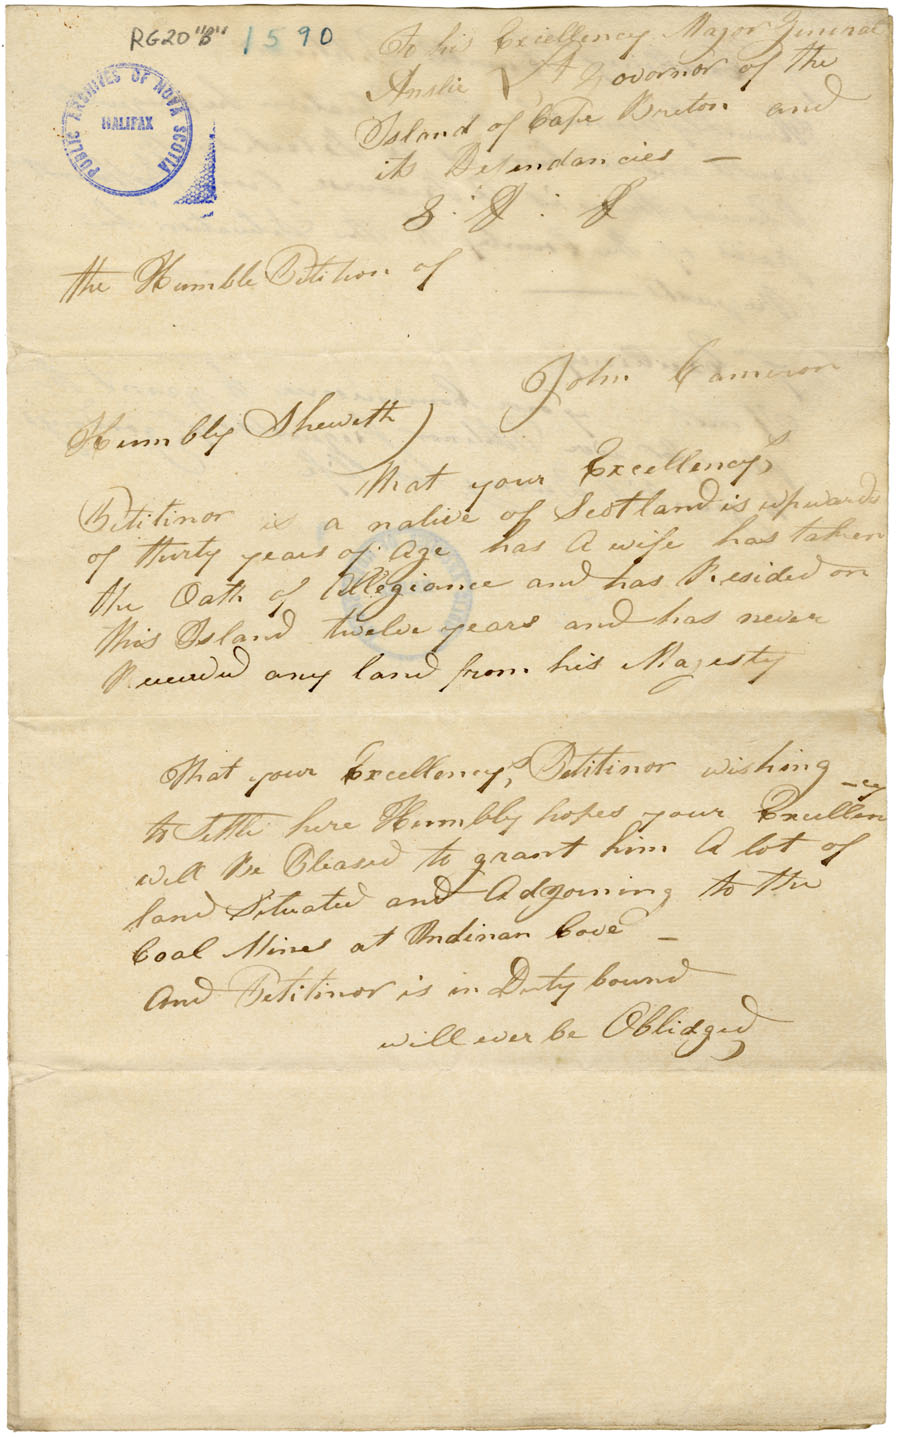 RG20 "B" 1590
PUBLIC ARCHIVES OF NOVA SCOTIA
HALIFAX
To his Excellency Major General
Anslie Lt Govornor of the
Island of Cape Breton and
its Defendancies —
&. &. &
the Humble Petition of
John Cameron
Humbly Sheweth)
That your Excellency,s
Petitinor is a native of Scotland is upwards
of thirty years of Age has A wife has taken
the Oath of Allegiance and has Resided on
this Island twelve years and has never
Receivd any land from his Magesty
That your Excellency,s Petitinor wishing
to Settle here Humbly hopes your Excellen-cy
will Be Pleased to grant him A lot of
land Situated and Adgoining to the
Coal Mines at Indinan Cove —
And Petitinor is in Duty bound
will ever be Oblidged